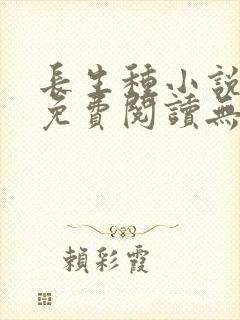 長生種小說
免費閱讀無
賴彩霞